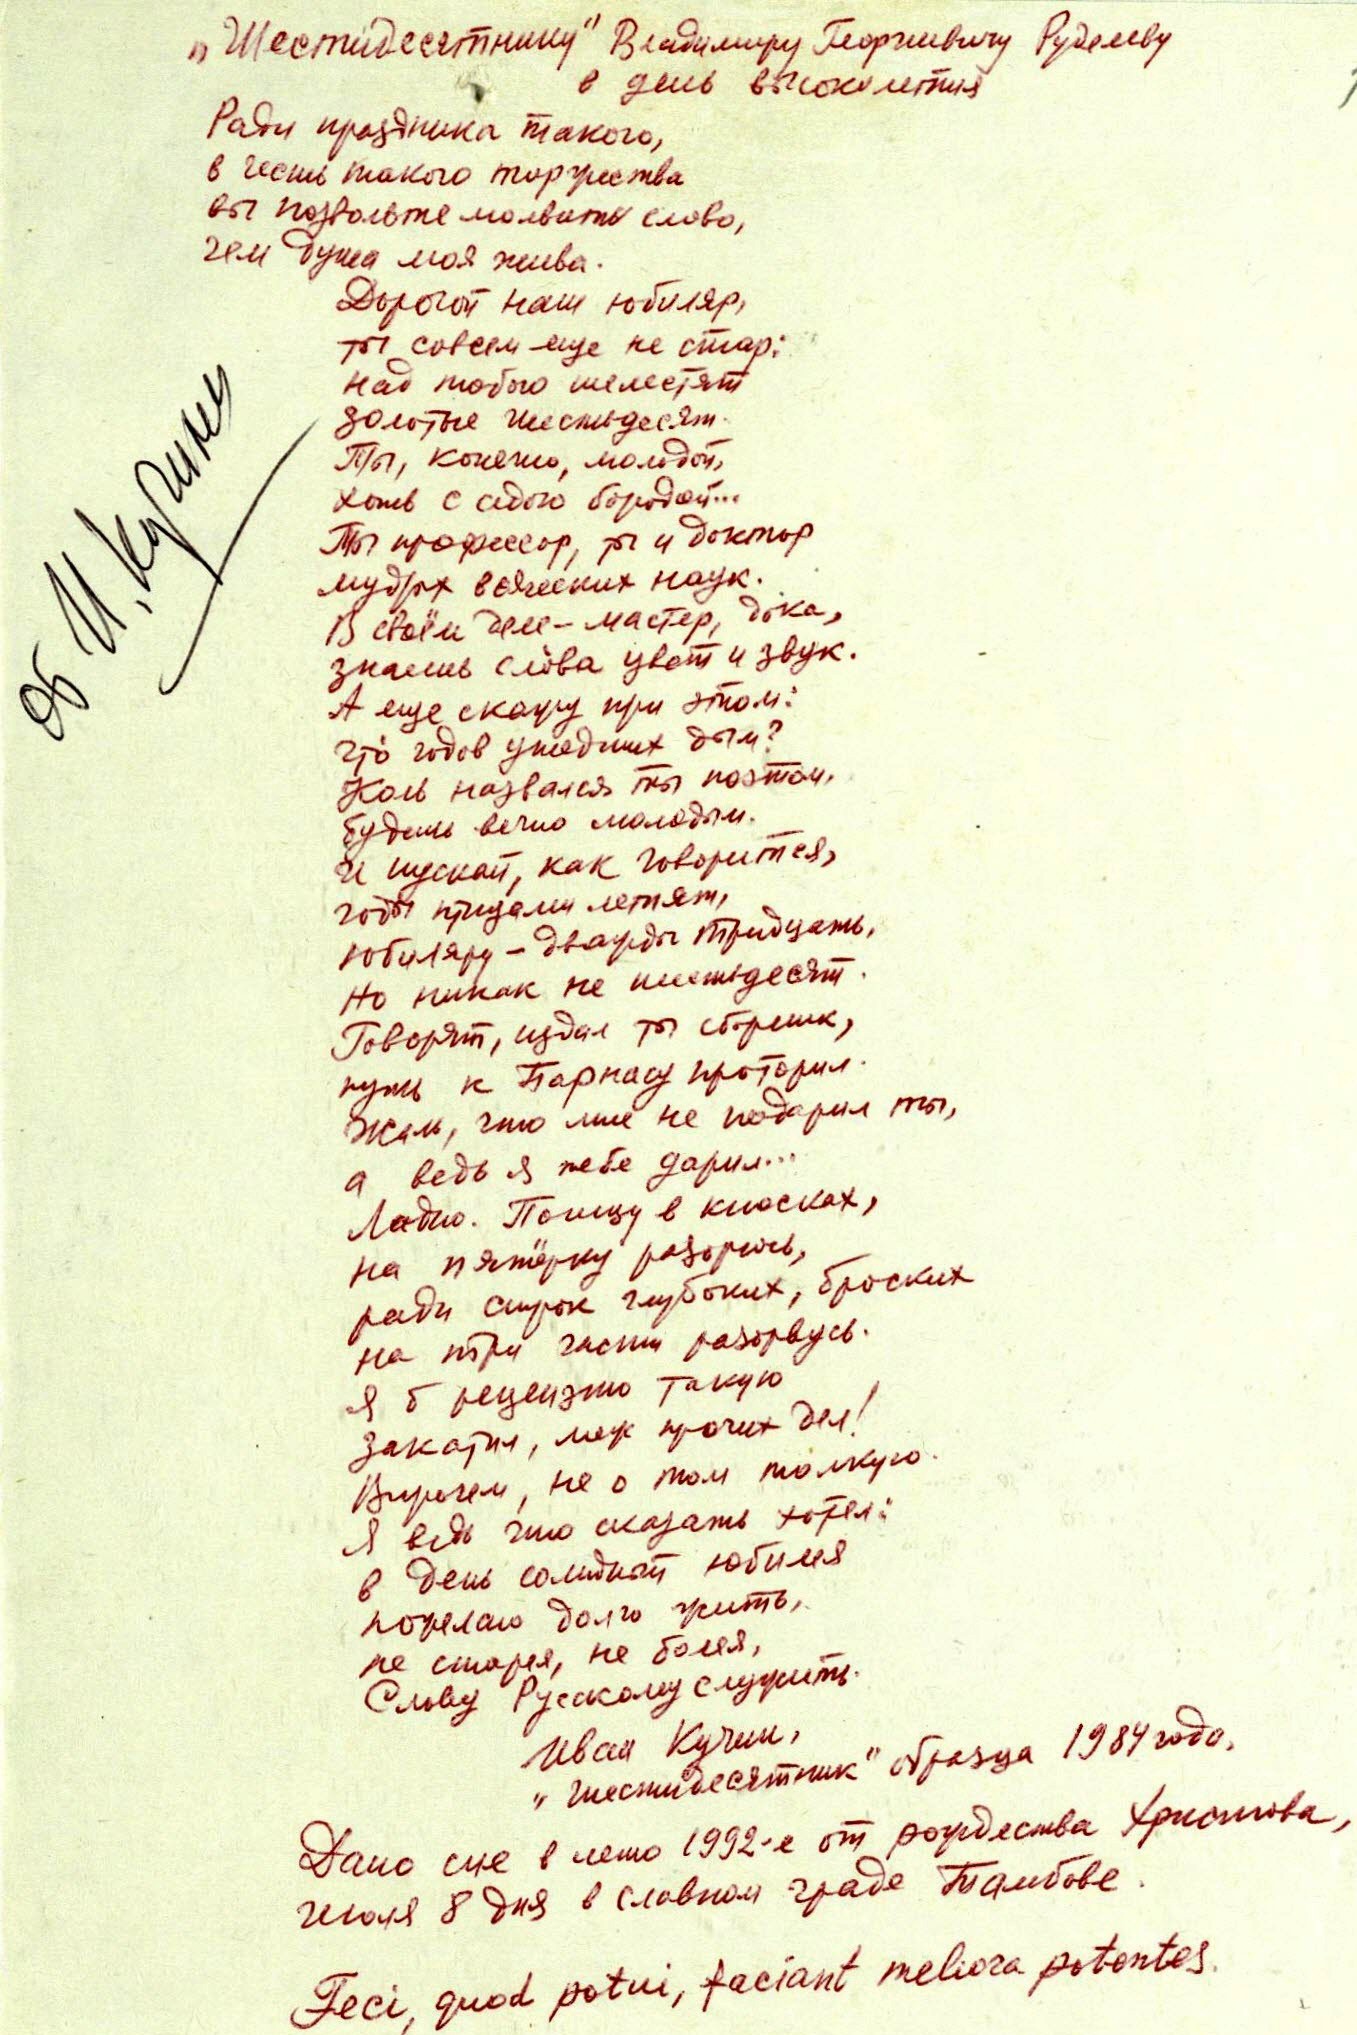 „Шестидесятнику" Владимиру Георгиевичу Руделеву
в день высоколетия
Ради праздника такого,
в честь такого торжества
вы позвольте молвить слово,
чем душа моя жива.
Дорогой наш юбиляр,
ты совсем еще не стар:
над тобою шелестят
золотые шестьдесят.
Ты, конечно, молодой,
хоть с седою бородой...
Ты профессор, ты и доктор
мудрых всяческих наук.
В своём деле – мастер, дока,
знаешь слова цвет и звук.
А еще скажу при этом:
что годов ушедших дым?
Коль назвался ты поэтом,
будешь вечно молодым.
И пускай, как говорится,
годы птицами летят,
юбиляру – дважды тридцать,
но никак не шестьдесят.
Говорят, издал ты сборник,
путь к Парнасу проторил.
Жаль, что мне не подарил ты,
а ведь я тебе дарил...
Ладно. Поищу в киосках,
на пятёрку разорюсь,
ради строк глубоких, броских
на три части разорвусь.
Я б рецензию такую
закатил, меж прочих дел!
Впрочем, не о том толкую.
Я ведь что сказать хотел:
в день солидный юбилея
пожелаю долго жить,
не старея, не болея,
Слову Русскому служить.
Иван Кучин,
„шестидесятник" образца 1984 года.
Дано сие в лето 1992-е от рождества Христова,
июля 8 дня в славном граде Тамбове.
Feci, quod potui, faciant meliora potentes.
об И. Кучине